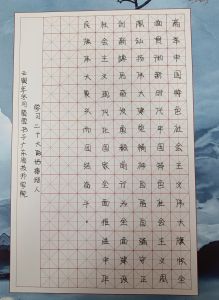 高举中国特色社会主义伟大旗帜全
面贯彻新时代中国特色社会主义思
想弘扬伟大建党精神自信自强守正
创新踔厉奋发勇毅前行为全面建设
社会主义现代化国家全面推进中华
民族伟大复兴而团结奋斗。
学习二十大
冬月 书于广东 学院